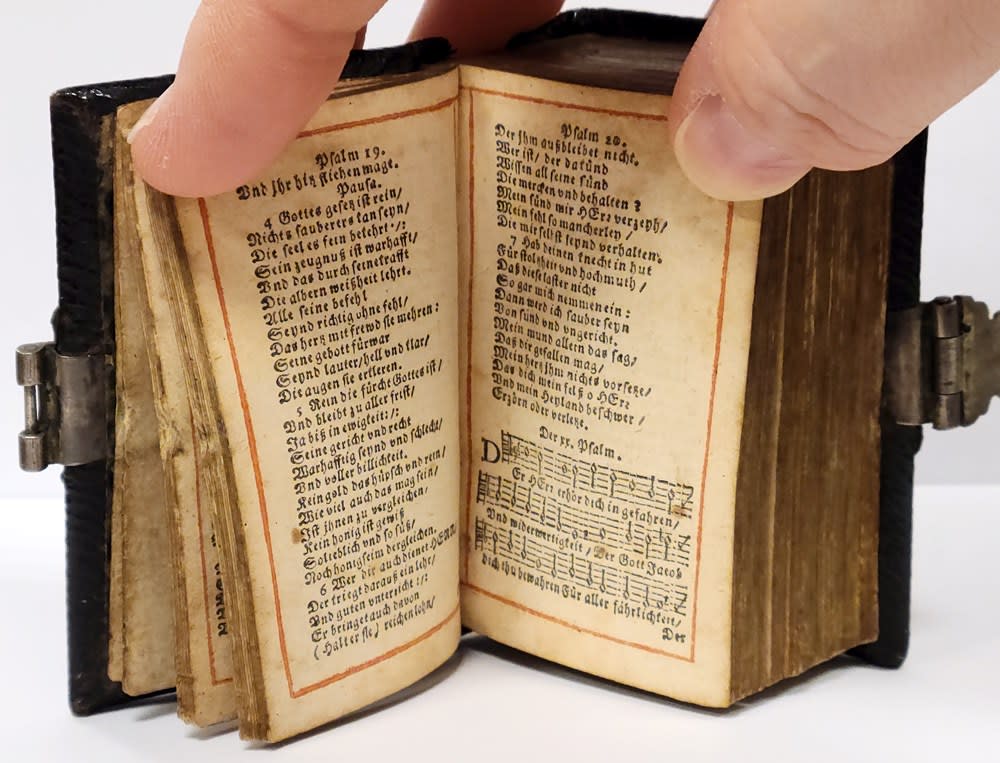 Psalm 19.
Vnd jhr hitz fliehen mage.
Pausa.
4 Gottes gesetz ist rein/
Nichts saubers kan seyn/
Die seel es fein bekehrt ·/:
Sein zeugnuß ist warhafft/
Vnd das durch seine krafft
Die albern weißheit lehrt.
Alle seine befehl
Seynd richtig ohne fehl/
Das hertz mit frewd sie mehren:
Seine gebott fürwar
Seynd lauter/ hell vnd klar/
Die augen sie erkleren.
5 Rein die fürcht Gottes ist/
Vnd bleibt zu aller frist/
Ja biß in ewigkeit:/:
Seine gericht vnd recht
Warhafftig seynd vnd schlecht/
Vnd voller billichkeit.
Kein gold das hüpsch vnd rein/
Wie viel auch das mag sein/
Ist jhnen zu vergleichen/
Kein honig ist gewiß
So lieblich vnd so süß/
Noch honigseim dergleichen.
6 Wer dir auch dienet HERR/
Der kriegt darauß ein lehr/
Vnd guten vnterricht :/:
Er bringet auch davon
(Halt er sie) reichen lohn/
Psalm 20.
Der jhm außbleibet nicht.
Wer ist/ der da künd
Wissen all seine sünd
Die mercken vnd behalten?
Mein sünd mir HErr verzeyh/
Mein fehl so mancherley/
Die mir selbst seynd verhalten.
7 Hab deinen knecht in hut
Für stoltzheit vnd hochmuth/
Daß dieselaster nicht
So gar mich nemmen ein:
Dann werd ich sauber seyn
Von sünd vnd vngericht.
Mein mund allein das sag/
Daß dir gefallen mag/
Mein hertz jhm nichts vorsetze/
Das dich mein felß o HErr
Vnd mein Heyland beschwer/
Erzörn oder verletze.
Der xx. Psalm.
DEr HErr erhör dich in gefahren/
Vnd widerwertigkeit/ Der Gott Jacobs
dich thu bewahren Für aller fährlichkeit/
Der